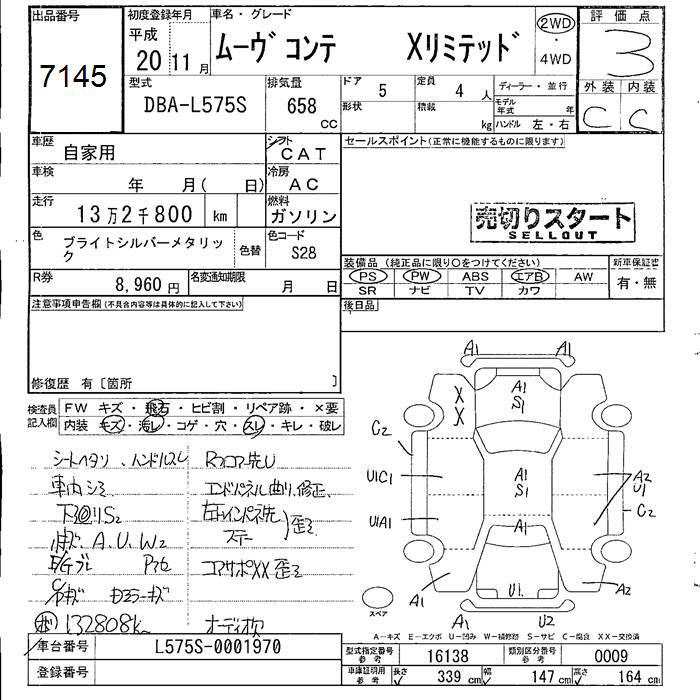 出品番号
7145
初度登録年月
平成
20 11 月
車名・グレード
ムーヴ コンテ Xリミテッド
2WD
・
4WD
評価点
3
外装 内装
C C
型式
DBA-L575S
排気量
658 CC
ドア 5
形状
定員 4 人
積載 kg
ディーラー・並行
モデル年式 年
ハンドル 左・右
車歴 自家用
シフト CAT
車検 年 月( 日)
冷房 AC
走行 13万2千800 km
燃料 ガソリン
色 ブライトシルバーメタリック
色替
色コード S28
R券 8,960 円
名変通知期限 月 日
セールスポイント(正常に機能するものに限ります)
売切りスタート
SELLOUT
装備品(純正品に限り○をつけてください)
PS PW ABS エアB AW
SR ナビ TV カワ
新車保証書
有・無
後日品
注意事項申告欄(不具合内容等は具体的に記入して下さい)
修復歴 有〔箇所 〕
検査員記入欄
FW キズ・飛石・ヒビ割・リペア跡・×要
内装 キズ・汚レ・コゲ・穴・スレ・キレ・破レ
シートヘタリ、ハンドルスレ
車内シミ
下回りS2
A、U、W2
E/Gブレ
132808k
エンドパネル曲り、修正
歪ミ
コアサポXX 歪ミ
オーディオ欠
A1 A1
X
X
A1
S1
C2
U1C1
A1
S1
A2
U1
C2
U1A1
A1
A1
U1
A2
A1
U2
スペア
A—キズ E—エクボ U—凹み W—補修跡 S—サビ C—腐食 XX—交換済
車台番号 L575S-0001970
登録番号
型式指定番号 参考 16138
類別区分番号 参考 0009
車庫証明用 参考 長さ 339 cm 幅 147 cm 高さ 164 cm